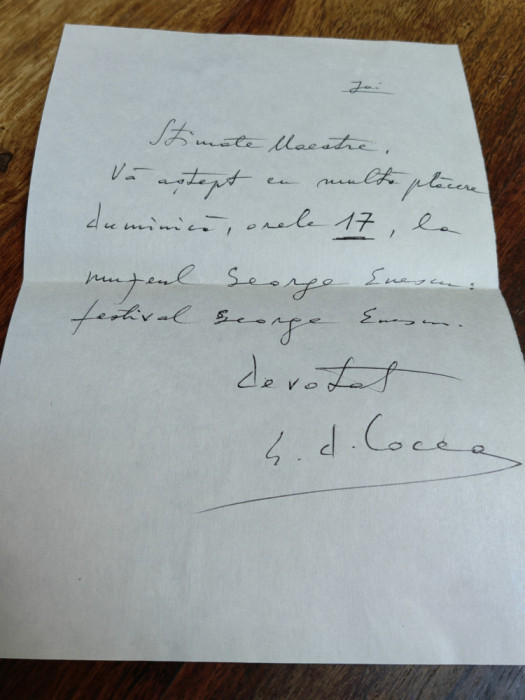 Joi
Stimate Maestre,
Vă aștept cu multă plăcere
duminică, orele 17, la
muzeul George Enescu:
festival George Enescu.
devotat
G. d. Cocea